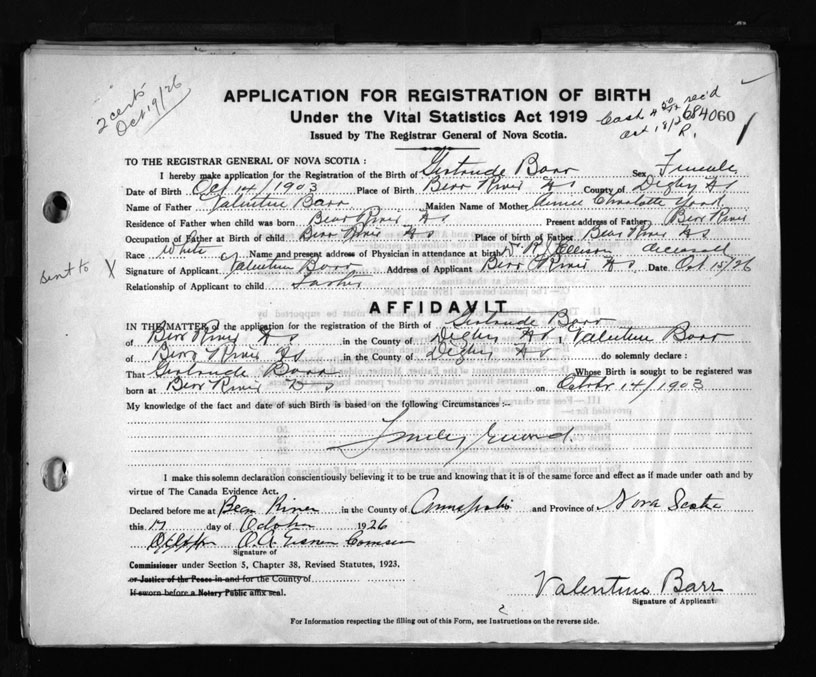 2 certs
Oct 19/26
APPLICATION FOR REGISTRATION OF BIRTH
Under the Vital Statistics Act 1919
Issued by The Registrar General of Nova Scotia.
Cash rec'd
Oct 18/26
684060
TO THE REGISTRAR GENERAL OF NOVA SCOTIA :
I hereby make application for the Registration of the Birth of Gertrude Barr Sex Female
Date of Birth Oct 14/1903 Place of Birth Bear River NS County of Digby NS
Name of Father Valentine Barr Maiden Name of Mother Annie Charlotte York
Residence of Father when child was born Bear River NS Present address of Father Bear River
Occupation of Father at Birth of child Bear River NS Place of birth of Father Bear River NS
Race White Name and present address of Physician in attendance at birth Dr R J Ellison deceased
sent to X
Signature of Applicant Valentine Barr Address of Applicant Bear River NS Date Oct 15/26
Relationship of Applicant to child Father
AFFIDAVIT
IN THE MATTER of the application for the registration of the Birth of Gertrude Barr
of Bear River NS in the County of Digby NS I, Valentine Barr
of Bear River NS in the County of Digby NS do solemnly declare :
That Gertrude Barr Whose Birth is sought to be registered was
born at Bear River NS on October 14/1903
My knowledge of the fact and date of such Birth is based on the following Circumstances :-
Family Record.
I make this solemn declaration conscientiously believing it to be true and knowing that it is of the same force and effect as if made under oath and by
virtue of The Canada Evidence Act.
Declared before me at Bear River in the County of Annapolis and Province of Nova Scotia
this 17 day of October 1926
Signature of
Commissioner under Section 5, Chapter 38, Revised Statutes, 1923.
or Justice of the Peace in and for the County of
If sworn before a Notary Public affix seal.
Valentine Barr
Signature of Applicant.
For Information respecting the filling out of this Form, see Instructions on the reverse side.